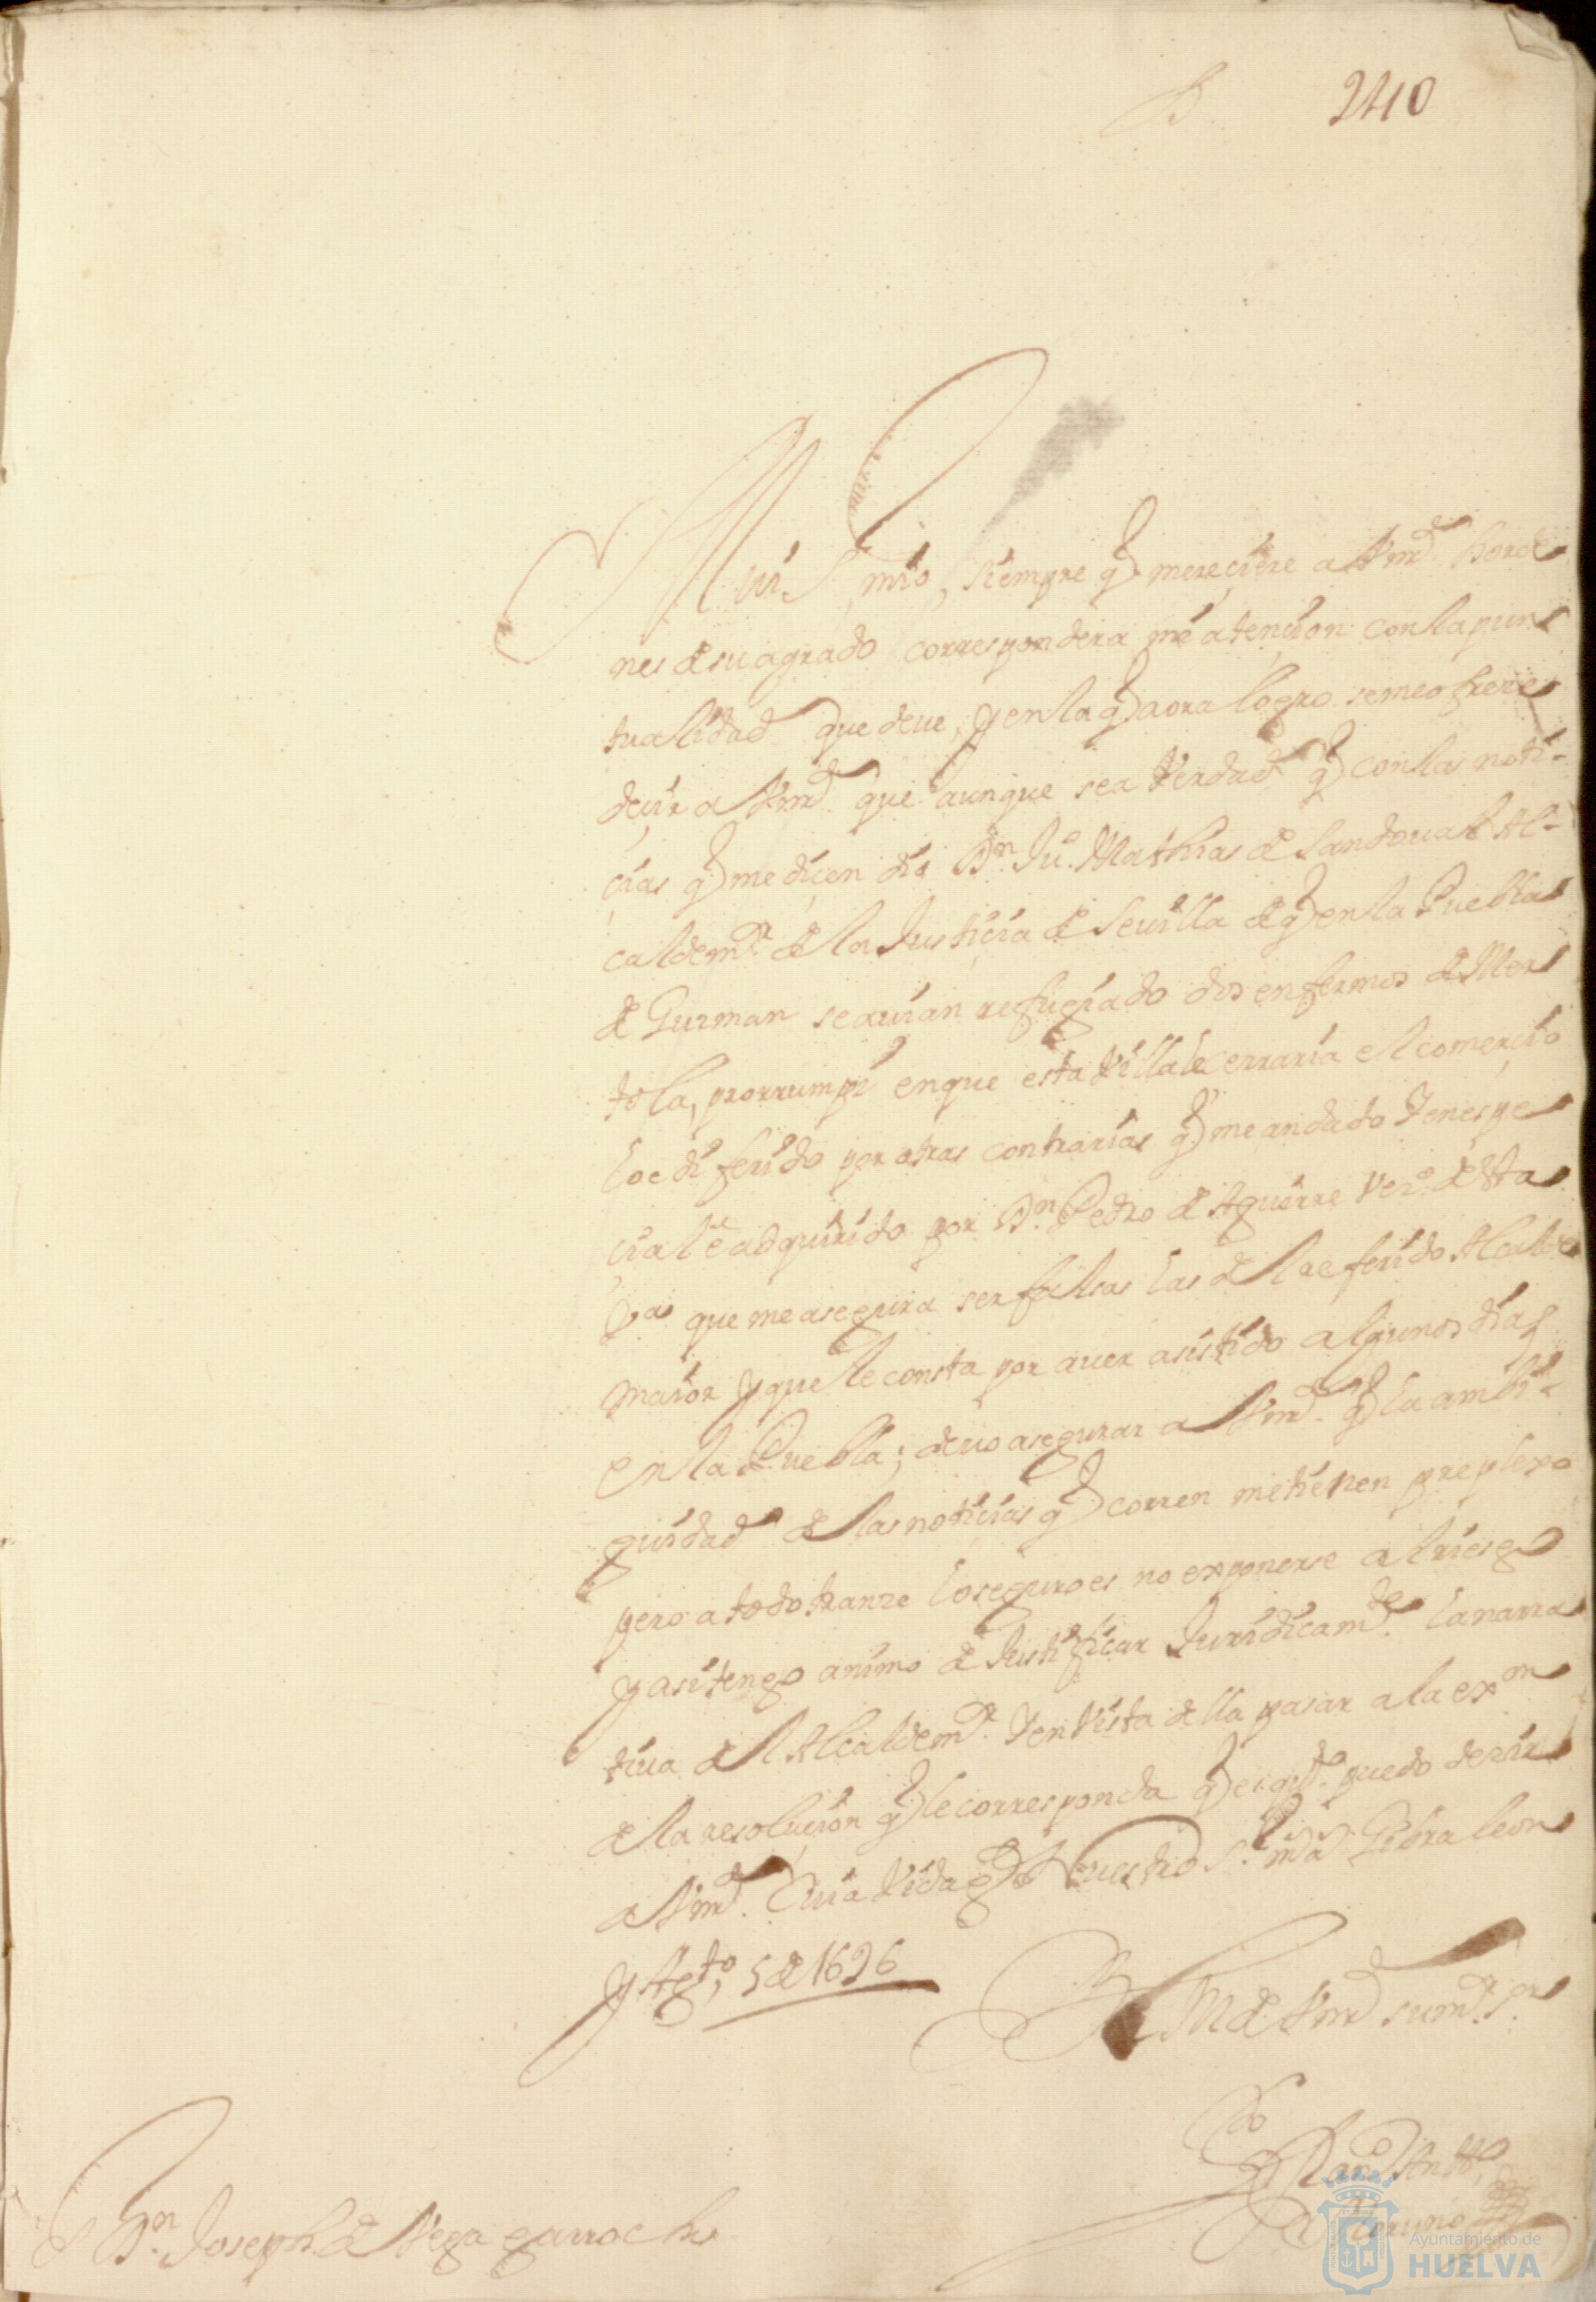 240
Mui S.r mio, siempre q mereçiere a Vmd. horde
nes de su agrado correspondera mi atençion con la pun
tualidad que deve, y en la q aora logro se me ofreze
deçir a Vmd. que aunque sea Verdad q con las noti-
çias q me diçen dio Dn. Ju.o Mathias de Sandoual Al-
calde m.r de la Justiçia de Seuilla de q en la Puebla
de Guzman se auian refugiado dos enfermos de Mer
tola, prorrumpi en que esta Villa le cerraria el comerçio
lo e diferido por otras contrarias q me an dado y en espe
çial e adquirido por Dn. Pedro de Aguirre Vez.o desta
V.a que me asegura ser falsas las del referido Alcalde
maior y que le consta por auer asistido algunos dias
en la Puebla; deuo asegurar a Vmd. q la ambi-
guidad de las notiçias q corren me tienen preplexo
pero a todo tranze lo seguro es no exponerse al riesgo
y asi tengo animo de Justificar Juridicam.te la narra
tiua del Alcalde m.r y en Vista della pasar a la ex.on
de la resoluçion q le corresponda q es q.to puedo dezir
a Vmd. Cuia Vida g.de Nuestro S.r m.s a.s Gibraleon
y Ag.to, 5 de 1696
B L M de Vmd su m.r s.or
Ldo
Fran.co Ant.o
S Dn. Joseph de Vega garrocho
Ayuntamiento de
HUELVA